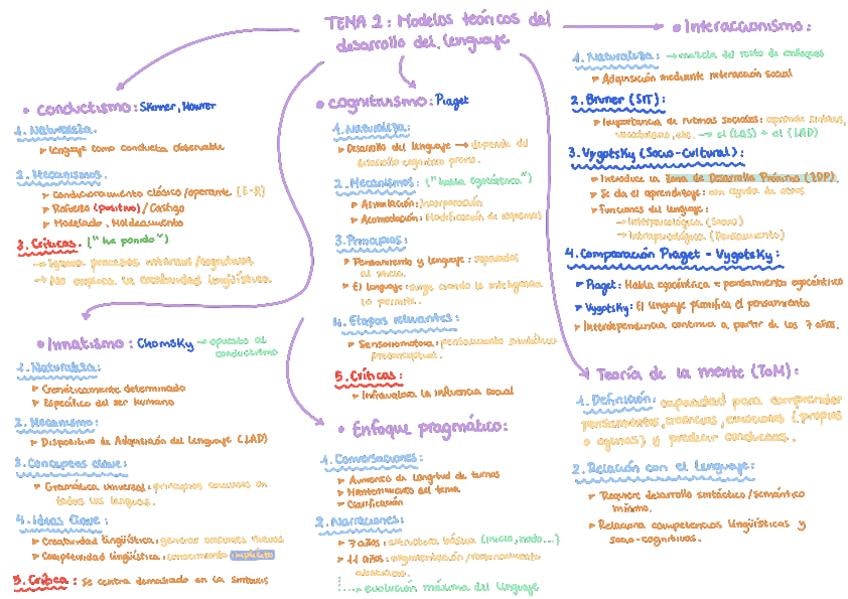 TEMA 2: Modelos teóricos del
desarrollo del lenguaje
• Conductismo: Skinner, Mowrer
1. Naturaleza.
▸ Lenguaje como conducta observable
2. Mecanismos:
▸ Condicionamiento clásico/operante (E-R)
▸ Refuerzo (positivo)/Castigo
▸ Modelado, Moldeamiento
3. Críticas. ("ha ponido")
→ Ignora procesos internos/cognitivos
→ No explica la creatividad lingüística.
• Innatismo: Chomsky → opuesto al
conductismo
1. Naturaleza:
▸ Genéticamente determinado
▸ Específico del ser humano
2. Mecanismo:
▸ Dispositivo de Adquisición del Lenguaje (LAD)
3. Conceptos clave:
▸ Gramática universal: principios comunes en
todas las lenguas.
4. Ideas Clave:
▸ Creatividad lingüística: generar oraciones nuevas
▸ Complejidad lingüística: conocimiento implícito
5. Crítica: Se centra demasiado en la sintaxis
• Cognitivismo: Piaget
1. Naturaleza:
▸ Desarrollo del lenguaje → depende del
desarrollo cognitivo previo.
2. Mecanismos: ("habla egocéntrica")
▸ Asimilación: Incorporación
▸ Acomodación: Modificación de esquemas
3. Principios:
▸ Pensamiento y lenguaje: separados
al inicio.
▸ El lenguaje: surge cuando la inteligencia
lo permite.
4. Etapas relevantes:
▸ Sensoriomotora: pensamiento simbólico
preconceptual.
5. Críticas:
▸ Infravalora la influencia social
• Enfoque pragmático:
1. Conversaciones:
▸ Aumento de longitud de turnos
▸ Mantenimiento del tema
▸ Clarificación
2. Narraciones:
▸ 7 años: estructura básica (inicio, nudo...)
▸ 11 años: argumentación/razonamiento
→ evolución máxima del lenguaje
• Interaccionismo:
1. Naturaleza: → mezcla del resto de enfoques
▸ Adquisición mediante interacción social
2. Bruner (SIT):
▸ Importancia de rutinas sociales: aprende sintaxis,
vocabulario, etc. → el (LAS) + el (LAD)
3. Vygotsky (Socio-Cultural):
▸ Introduce la Zona de Desarrollo Próximo (ZDP).
▸ Se da el aprendizaje: con ayuda de otros
▸ Funciones del lenguaje:
→ Interpsicológica (Social)
→ Intrapsicológica (Pensamiento)
4. Comparación Piaget - Vygotsky:
▸ Piaget: Habla egocéntrica = pensamiento egocéntrico
▸ Vygotsky: El lenguaje planifica el pensamiento
▸ Interdependencia continua a partir de los 7 años.
Teoría de la mente (ToM):
1. Definición: capacidad para comprender
pensamientos, creencias, emociones (propias
o ajenas) y predecir conductas.
2. Relación con el lenguaje:
▸ Requiere desarrollo sintáctico/semántico
mínimo.
▸ Relaciona competencias lingüísticas y
socio-cognitivas.